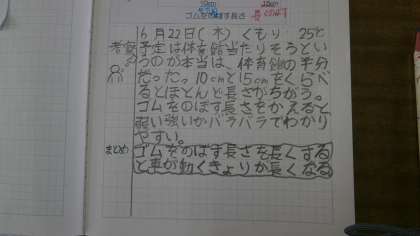 ゴムをのばす長さ
6月22日(木) くもり 25℃
考察 予定は体育館当たりそうとい
うのが本当は、体育館の半分
だった。10cmと15cmをくらべ
るとほとんど長さがちがう。
ゴムをのばす長さをかえると
弱い強いがバラバラでわかり
やすい。
まとめ ゴムをのばす長さを長くする
と車が動くきょりが長くなる